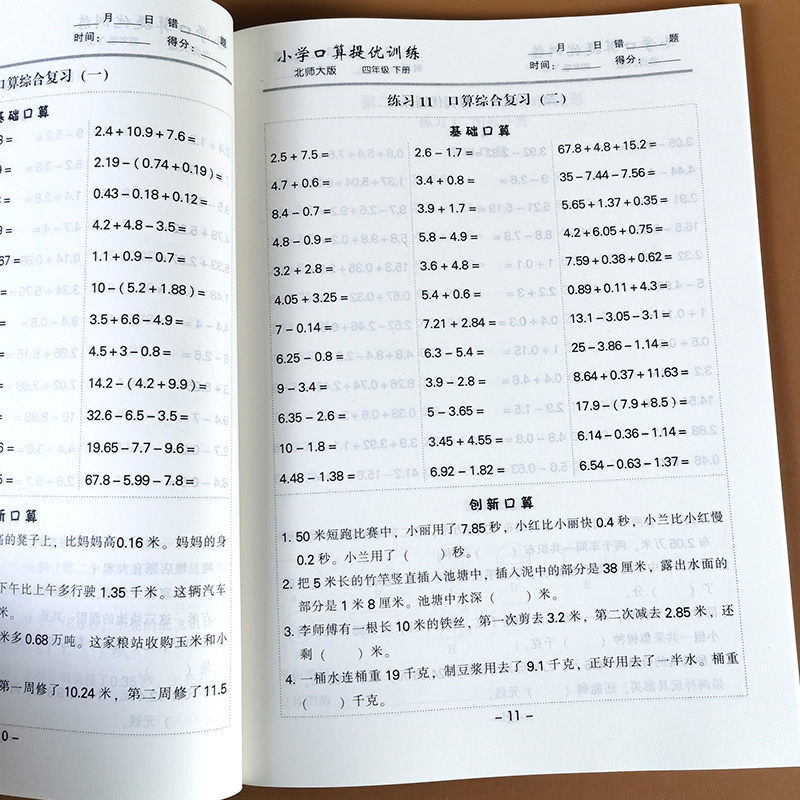 月 日 错 题
时间： 得分：
口算综合复习（一）
基础口算
2.4＋10.9＋7.6＝
2.19－（0.74＋0.19）＝
0.43－0.18＋0.12＝
4.2＋4.8－3.5＝
1.1＋0.9－0.7＝
10－（5.2＋1.88）＝
3.5＋6.6－4.9＝
4.5＋3－0.8＝
14.2－（4.2＋9.9）＝
32.6－6.5－3.5＝
19.65－7.7－9.6＝
67.8－5.99－7.8＝
新口算
高的凳子上，比妈妈高0.16 米。妈妈的身
下午比上午多行驶 1.35 千米。这辆汽车
米。
米多 0.68 万吨。这家粮站收购玉米和小
第一周修了 10.24 米，第二周修了11.5
0－
小学口算提优训练
北师大版 四年级 下册
月 日 错 题
时间： 得分：
练习 11 口算综合复习（二）
基础口算
2.5＋7.5＝ 2.6－1.7＝ 67.8＋4.8＋15.2＝
4.7＋0.6＝ 3.4＋0.8＝ 35－7.44－7.56＝
8.4－0.7＝ 3.9＋1.7＝ 5.65＋1.37＋0.35＝
4.8－0.9＝ 5.8－4.9＝ 4.2＋6.05＋0.75＝
3.2＋2.8＝ 3.6＋4.8＝ 7.59＋0.38＋0.62＝
4.05＋3.25＝ 5.4＋0.6＝ 0.89＋0.11＋4.3＝
7－0.14＝ 7.21＋2.84＝ 13.1－3.05－3.1＝
6.25－0.8＝ 6.3－5.4＝ 25－3.86－1.14＝
9－3.4＝ 3.9－2.8＝ 8.64＋0.37＋11.63＝
6.35－2.6＝ 5－3.65＝ 17.9－（7.9＋8.5）＝
10－1.8＝ 3.45＋4.55＝ 6.14－0.36－1.14＝
4.48－1.38＝ 6.92－1.82＝ 6.54－0.63－1.37＝
创新口算
1. 50 米短跑比赛中，小丽用了 7.85 秒，小红比小丽快 0.4 秒，小兰比小红慢
0.2 秒。小兰用了（ ）秒。
2. 把 5 米长的竹竿竖直插入池塘中，插入泥中的部分是 38 厘米，露出水面的
部分是 1 米 8 厘米。池塘中水深（ ）米。
3. 李师傅有一根长 10 米的铁丝，第一次剪去3.2 米，第二次减去 2.85 米，还
剩（ ）米。
4. 一桶水连桶重 19 千克，制豆浆用去了 9.1 千克，正好用去了一半水。桶重
（ ）千克。
－ 11 －